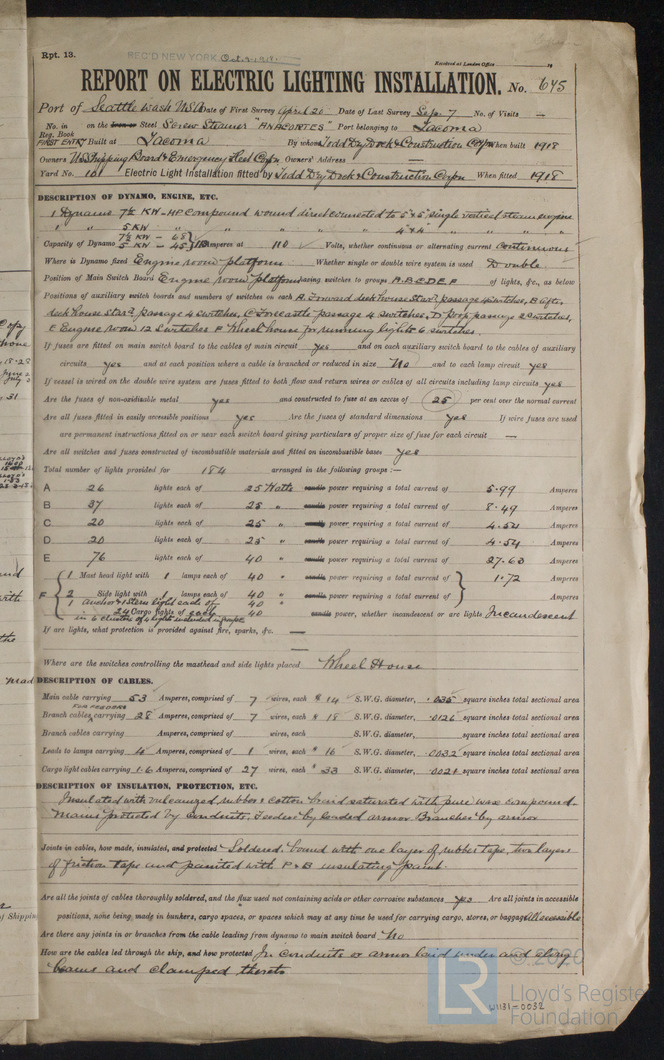 Rpt. 13.
REC'D NEW YORK Oct. 2. 1918
Received at London Office 19
REPORT ON ELECTRIC LIGHTING INSTALLATION. No. 645
Port of Seattle Wash USA Date of First Survey April 20 Date of Last Survey Sep. 7 No. of Visits —
No. in Reg. Book on the Iron or Steel Screw Steamer "ANACORTES" Port belonging to Tacoma
FIRST ENTRY Built at Tacoma By whom Todd Dry Dock & Construction Corpn When built 1918
Owners U.S. Shipping Board & Emergency Fleet Corpn Owners' Address —
Yard No. 10 Electric Light Installation fitted by Todd Dry Dock & Construction Corpn When fitted 1918
DESCRIPTION OF DYNAMO, ENGINE, ETC.
1 Dynamo 7½ KW - HP Compound wound direct connected to 5 x 5 single vertical steam engine
" " 5 KW " " " " " 4 x 4 " " " "
7½ KW - 68
Capacity of Dynamo 5 KW - 45 Amperes at 110 Volts, whether continuous or alternating current Continuous
Where is Dynamo fixed Engine room platform Whether single or double wire system is used Double
Position of Main Switch Board Engine room platform having switches to groups A.B.C.D.E.F of lights, &c., as below
Positions of auxiliary switch boards and numbers of switches on each A. Forward deck house star'd passage 4 switches, B Aft
deck house star'd passage 4 switches, C Forecastle passage 4 switches, D Poop passage 2 switches,
E Engine room 12 switches F Wheel house for running lights 6 switches.
If fuses are fitted on main switch board to the cables of main circuit yes and on each auxiliary switch board to the cables of auxiliary
circuits yes and at each position where a cable is branched or reduced in size No and to each lamp circuit yes
If vessel is wired on the double wire system are fuses fitted to both flow and return wires or cables of all circuits including lamp circuits yes
Are the fuses of non-oxidizable metal yes and constructed to fuse at an excess of 25 per cent over the normal current
Are all fuses fitted in easily accessible positions yes Are the fuses of standard dimensions yes If wire fuses are used
are permanent instructions fitted on or near each switch board giving particulars of proper size of fuse for each circuit —
Are all switches and fuses constructed of incombustible materials and fitted on incombustible bases yes
Total number of lights provided for 184 arranged in the following groups :—
A 26 lights each of 25 Watts candle power requiring a total current of 5.99 Amperes
B 37 lights each of 25 " candle power requiring a total current of 8.49 Amperes
C 20 lights each of 25 " candle power requiring a total current of 4.54 Amperes
D 20 lights each of 25 " candle power requiring a total current of 4.54 Amperes
E 76 lights each of 40 " candle power requiring a total current of 27.63 Amperes
F 1 Mast head light with 1 lamps each of 40 " candle power requiring a total current of 1.72 Amperes
2 Side light with 1 lamps each of 40 " candle power requiring a total current of Amperes
1 anchor & 1 stern light each of 40 "
24 Cargo lights of each 40 candle power, whether incandescent or arc lights Incandescent
in 6 clusters of 4 lights included in groups
If arc lights, what protection is provided against fire, sparks, &c. —
—
Where are the switches controlling the masthead and side lights placed Wheel House
DESCRIPTION OF CABLES.
Main cable carrying 53 Amperes, comprised of 7 wires, each # 14 S.W.G. diameter, .035 square inches total sectional area
FOR FEEDERS
Branch cables carrying 28 Amperes, comprised of 7 wires, each # 18 S.W.G. diameter, .0126 square inches total sectional area
Branch cables carrying Amperes, comprised of wires, each S.W.G. diameter, square inches total sectional area
Leads to lamps carrying 4 Amperes, comprised of 1 wires, each # 16 S.W.G. diameter, .0032 square inches total sectional area
Cargo light cables carrying 1.6 Amperes, comprised of 27 wires, each # 33 S.W.G. diameter, .0021 square inches total sectional area
DESCRIPTION OF INSULATION, PROTECTION, ETC.
Insulated with vulcanized rubber & cotton braid saturated with pure wax compound.
Mains protected by conduits, Feeders by leaded armor Branches by armor
Joints in cables, how made, insulated, and protected Soldered. bound with one layer of rubber tape, two layers
of friction tape and painted with P & B insulating paint.
Are all the joints of cables thoroughly soldered, and the flux used not containing acids or other corrosive substances yes Are all joints in accessible
positions, none being made in bunkers, cargo spaces, or spaces which may at any time be used for carrying cargo, stores, or baggage All accessible
Are there any joints in or branches from the cable leading from dynamo to main switch board No
How are the cables led through the ship, and how protected In conduits or armor laid under and along
beams and clamped thereto
© 2020
LR
Lloyd's Register
Foundation
W1181-0032